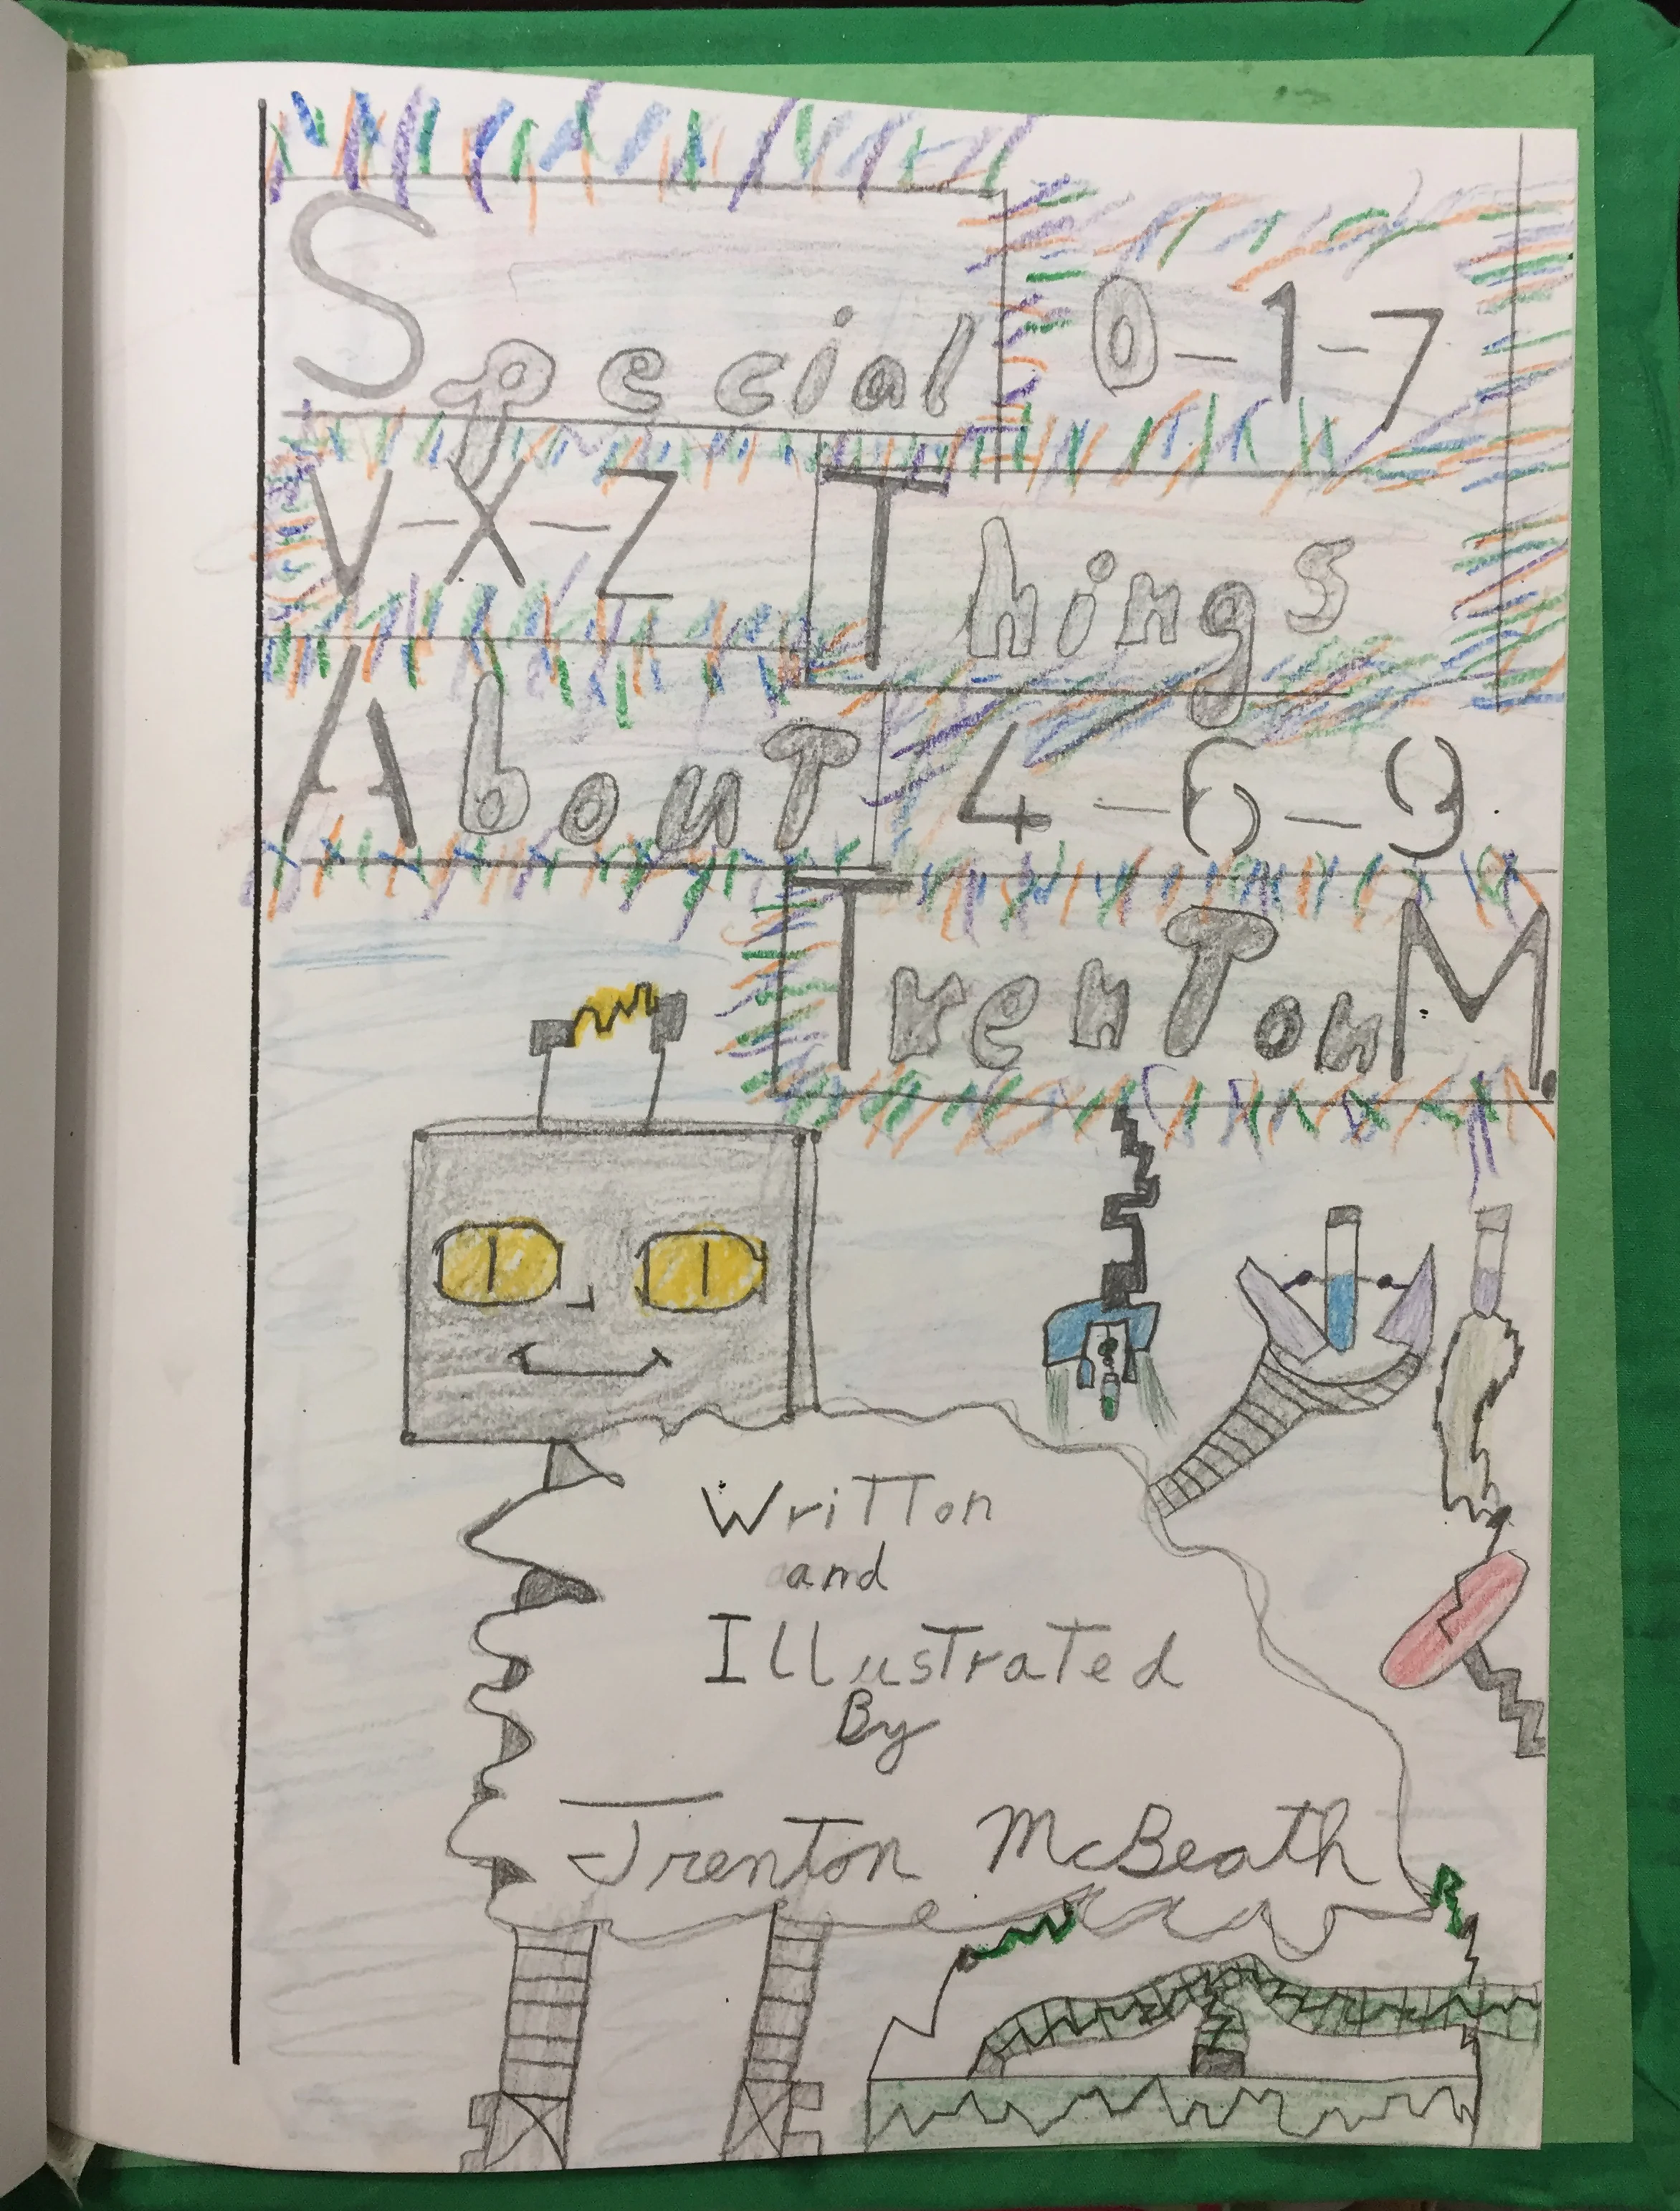 Special 0-1-7
V-X-Z Things
AbouT 4-6-9
TrenTon M.
WriTTon
and
IllusTraTed
By
Trenton McBeath